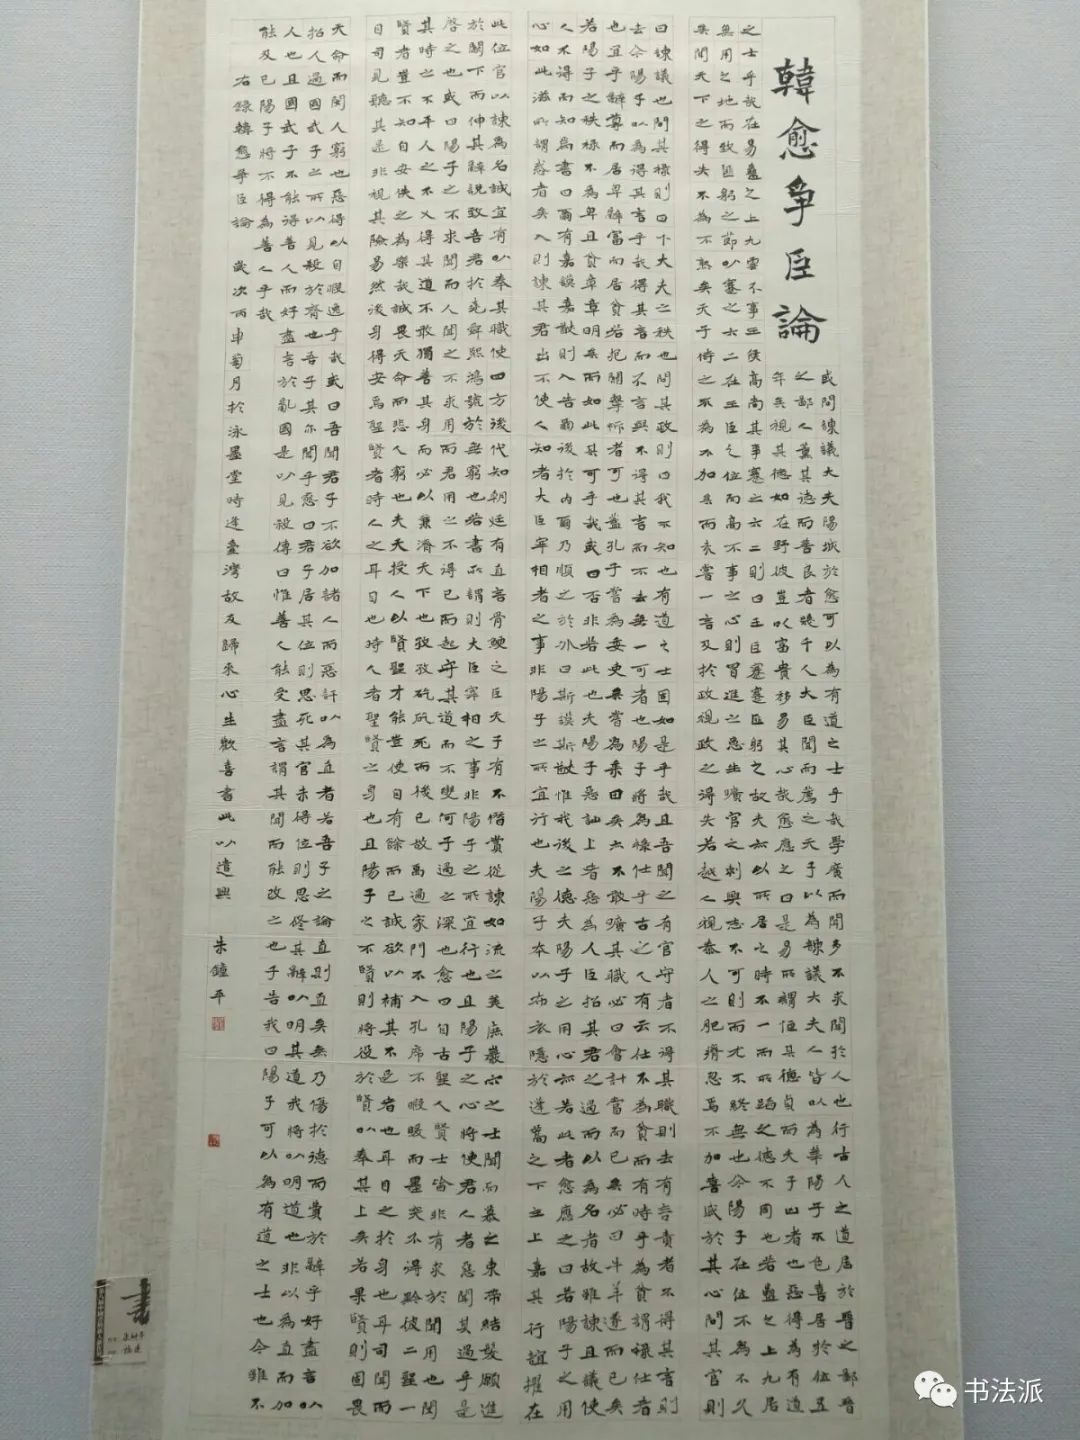 韓愈爭臣論
或問諫議大夫陽城於愈可以為有道之士乎哉學廣而聞多不求聞於人也行古人之道居於晉之鄙晉
之鄙人薰其德而善良者幾千人大臣聞而薦之天子以為諫議大夫人皆以為華陽子不色喜居於位五
年矣視其德如在野彼豈以富貴移易其心哉愈應之曰是易所謂恒其德貞而夫子凶者也惡得為有道
之士乎哉在易蠱之上九雲不事王侯高尚其事蹇之六二則曰王臣蹇蹇匪躬之故夫亦以所居之時不一而所蹈之德不同也若蠱之上九居
無用之地而致匪躬之節以蹇之六二在王臣之位而高不事之心則冒進之患生曠官之刺興志不可則而尤不終無也今陽子在位不為不久
矣聞天下之得失不為不熟矣天子待之不為不加矣而未嘗一言及於政視政之得失若越人視秦人之肥瘠忽焉不加喜戚於其心問其官則
曰諫議也問其祿則曰下大夫之秩也問其政則曰我不知也有道之士固如是乎哉且吾聞之有官守者不得其職則去有言責者不得其言則
去今陽子以為得其言乎哉得其言而不言與不得其言而不去無一可者也陽子將為祿仕乎古之人有云仕不為貧而有時乎為貧謂祿仕者
也宜乎辭尊而居卑辭富而居貧若抱關擊柝者可也蓋孔子嘗為委吏矣嘗為乘田矣亦不敢曠其職必曰會計當而已矣必曰牛羊遂而已矣
若陽子之秩祿不為卑且貧章章明矣而如此其可乎哉或曰否非若此也夫陽子惡訕上者惡為人臣招其君之過而以為名者故雖諫且議使
人不得而知焉書曰爾有嘉謨嘉猷則入告爾後於內爾乃順之於外曰斯謨斯猷惟我後之德夫陽子之用心亦若此者愈應之曰若陽子之用
心如此滋所謂惑者矣入則諫其君出不使人知者大臣宰相者之事非陽子之所宜行也夫陽子本以布衣隱於蓬蒿之下主上嘉其行誼擢在
此位官以諫為名誠宜有以奉其職使四方後代知朝廷有直言骨鯁之臣天子有不僭賞從諫如流之美庶巖穴之士聞而慕之束帶結髮願進
於闕下而伸其辭說致吾君於堯舜熙鴻號於無窮也若書所謂則大臣宰相之事非陽子之所宜行也且陽子之心將使君人者惡聞其過乎是
啟之也或曰陽子之不求聞而人聞之不求用而君用之不得已而起守其道而不變何子過之深也愈曰自古聖人賢士皆非有求於聞用也閔
其時之不平人之不乂得其道不敢獨善其身而必以兼濟天下也孜孜矻矻死而後已故禹過家門不入孔席不暇暖而墨突不得黔彼二聖一
賢者豈不知自安佚之為樂哉誠畏天命而悲人窮也夫天授人以賢聖才能豈使自有餘而已誠欲以補其不足者也耳目之於身也耳司聞而
目司見聽其是非視其險易然後身得安焉聖賢者時人之耳目也時人者聖賢之身也且陽子之不賢則將役於賢以奉其上矣若果賢則固畏
天命而閔人窮也惡得以自暇逸乎哉或曰吾聞君子不欲加諸人而惡訐以為直者若吾子之論直則直矣無乃傷於德而費於辭乎好盡言以
招人過國武子之所以見殺於齊也吾子其亦聞乎愈曰君子居其位則思死其官未得位則思修其辭以明其道我將以明道也非以為直而加
人也且國武子不能得善人而好盡言於亂國是以見殺傳曰惟善人能受盡言謂其聞而能改之也子告我曰陽子可以為有道之士也今雖不
能及已陽子將不得為善人乎哉
右錄韓愈爭臣論 歲次丙申菊月於泳墨堂時逢臺灣故友歸來心生歡喜書此以遣興 朱鐘平
書
书法派